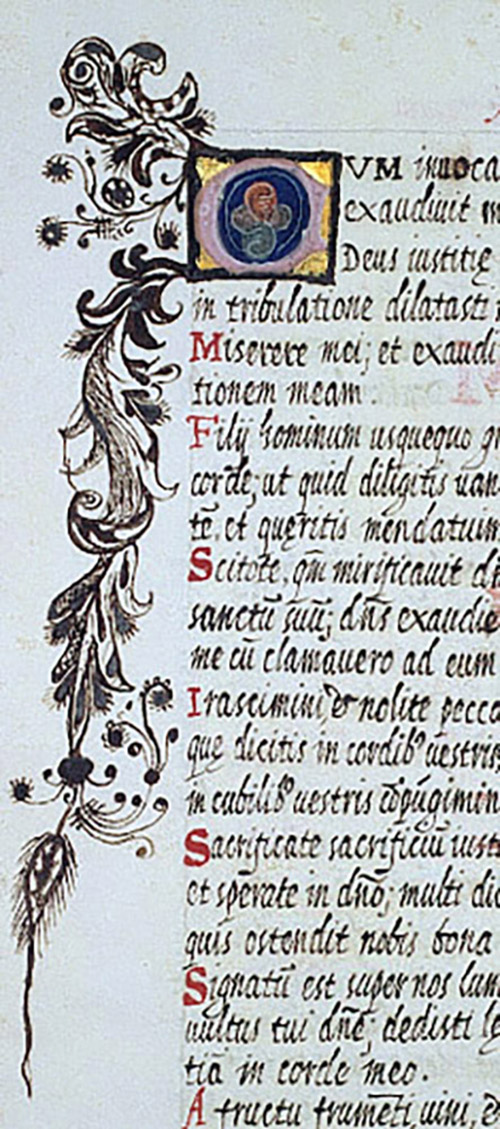 VM inuoca
exaudiuit m
Deus iustitię
in tribulatione dilatasti
Miserere mei; et exaudi
tionem meam.
Filij hominum usquequo gr
corde; ut quid diligitis uan
tē. et queritis mendatium
Scitote, qm̄ mirificauit dn̄
sanctū suū; dn̄s exaudie
me cū clamauero ad eum
Irascimini, & nolite pecca
que dicitis in cordibꝰ uestris
in cubilibꝰ uestris cōpūgimin
Sacrificate sacrificiū iust
et sperate in dn̄o; multi dic
quis ostendit nobis bona
Signatū est super nos lum
uultus tui dn̄e; dedisti lę
tiā in corde meo.
A fructu frumēti, uini, &